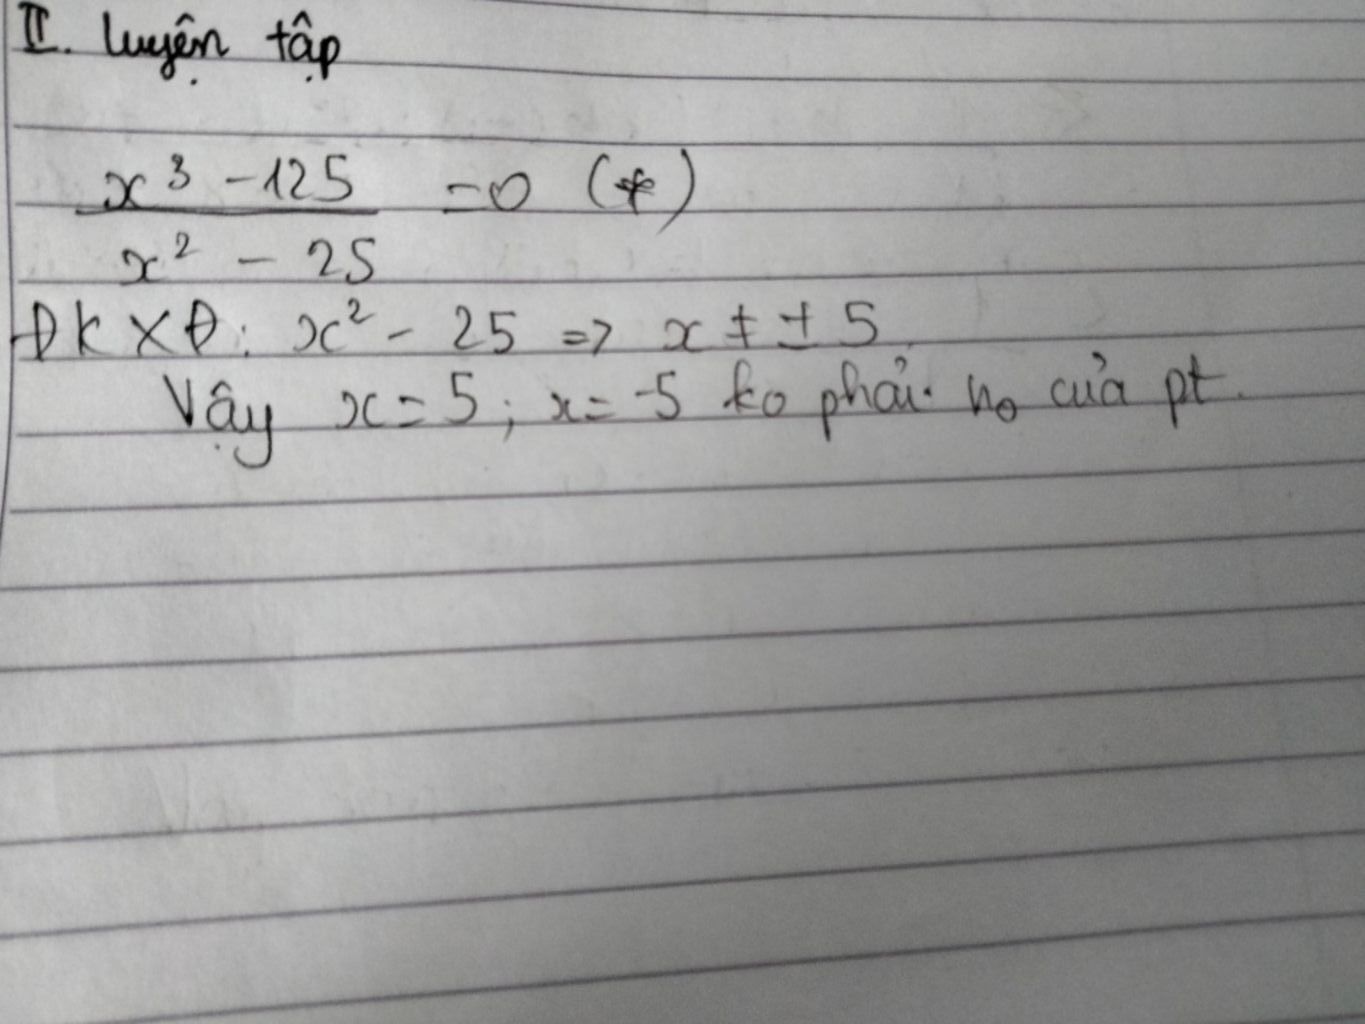 II. luyện tập
x³ - 125 = 0 (*)
x² - 25
ĐKXĐ: x² - 25 => x ≠ ± 5
Vậy x = 5 ; x = -5 ko phải no của pt.